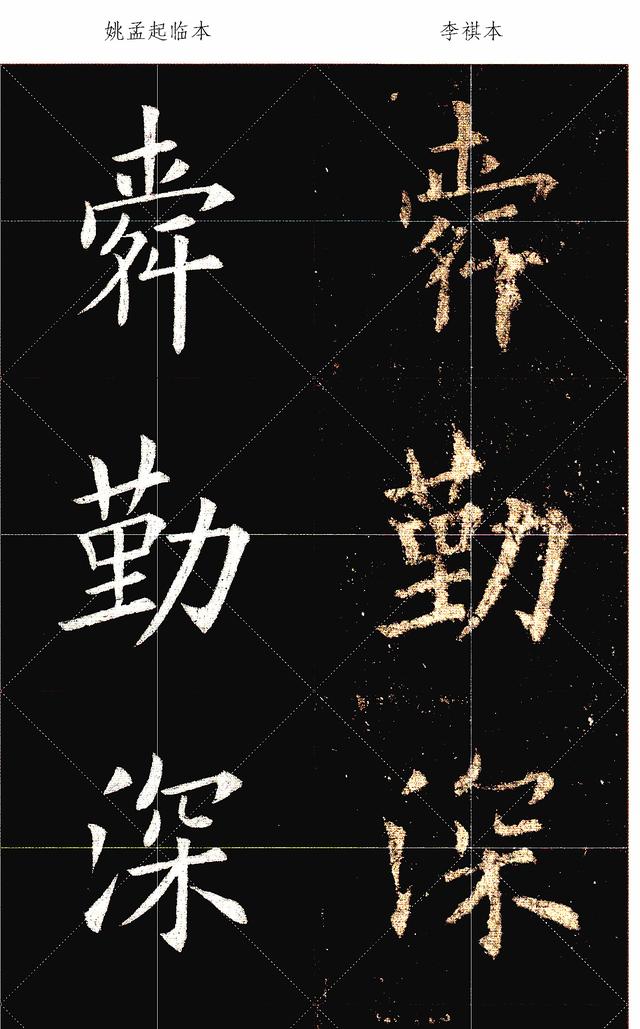 姚孟起临本 李祺本
舜 舜
勤 勤
深 深